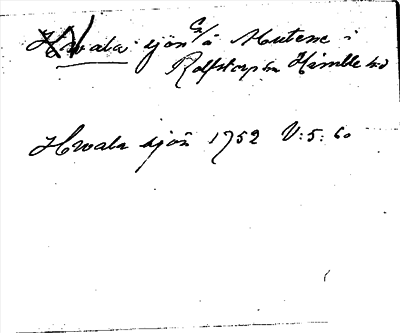 Hwala sjön å Mutene i
Rolfstorp sn Himle hd
Hwala sjön 1752 V:5:60